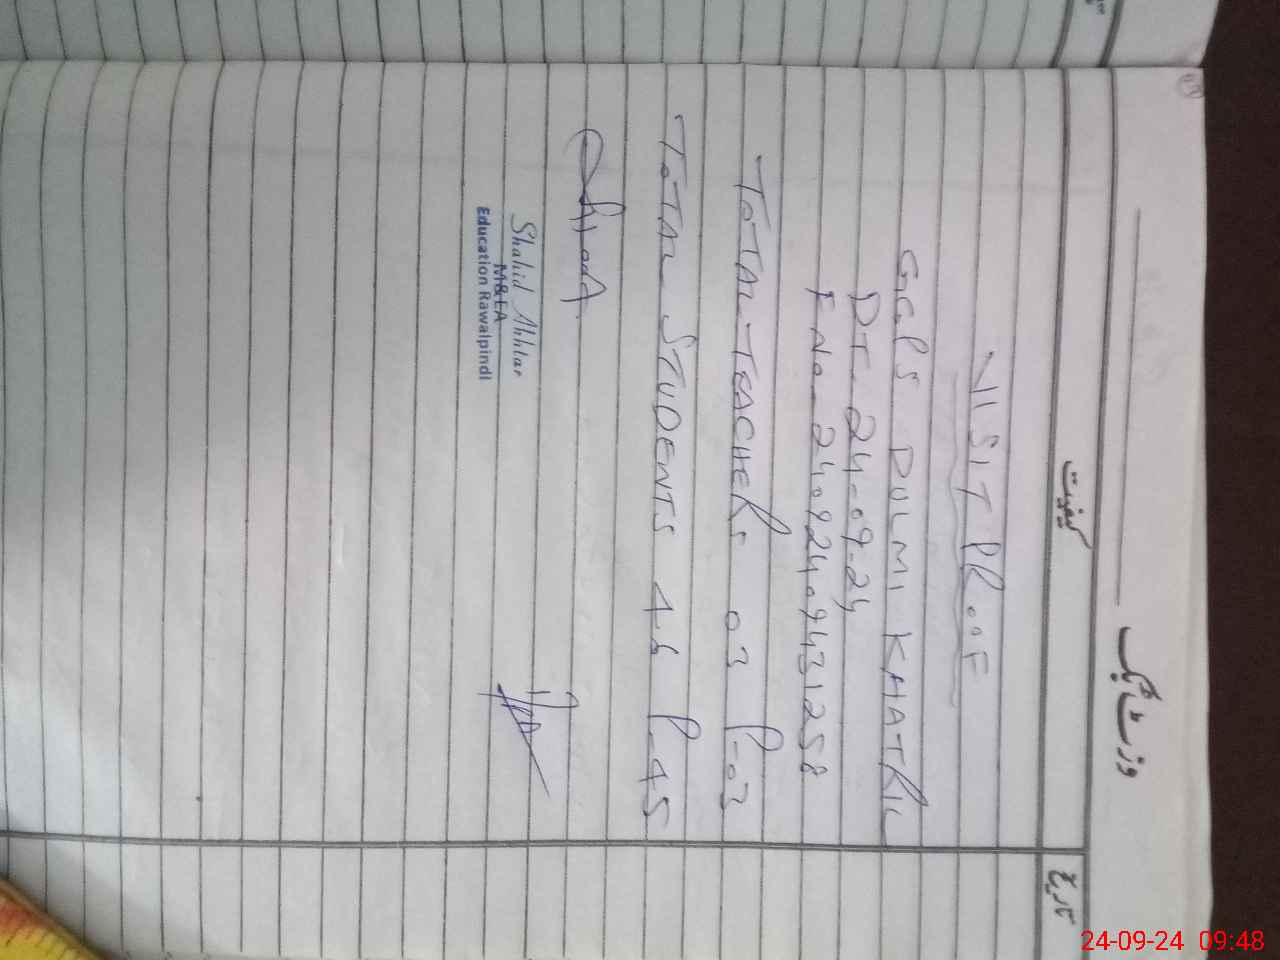 وزٹ بک
کیفیت
تاریخ
VISIT PROOF
GGPS DULMI KHATRIL
DT- 24-09-24
F No- 24092409431258
TOTAL TEACHERS 03 P-03
TOTAL STUDENTS 46 P-45
Shahid Akhtar
M&EA
Education Rawalpindi
24-09-24 09:48